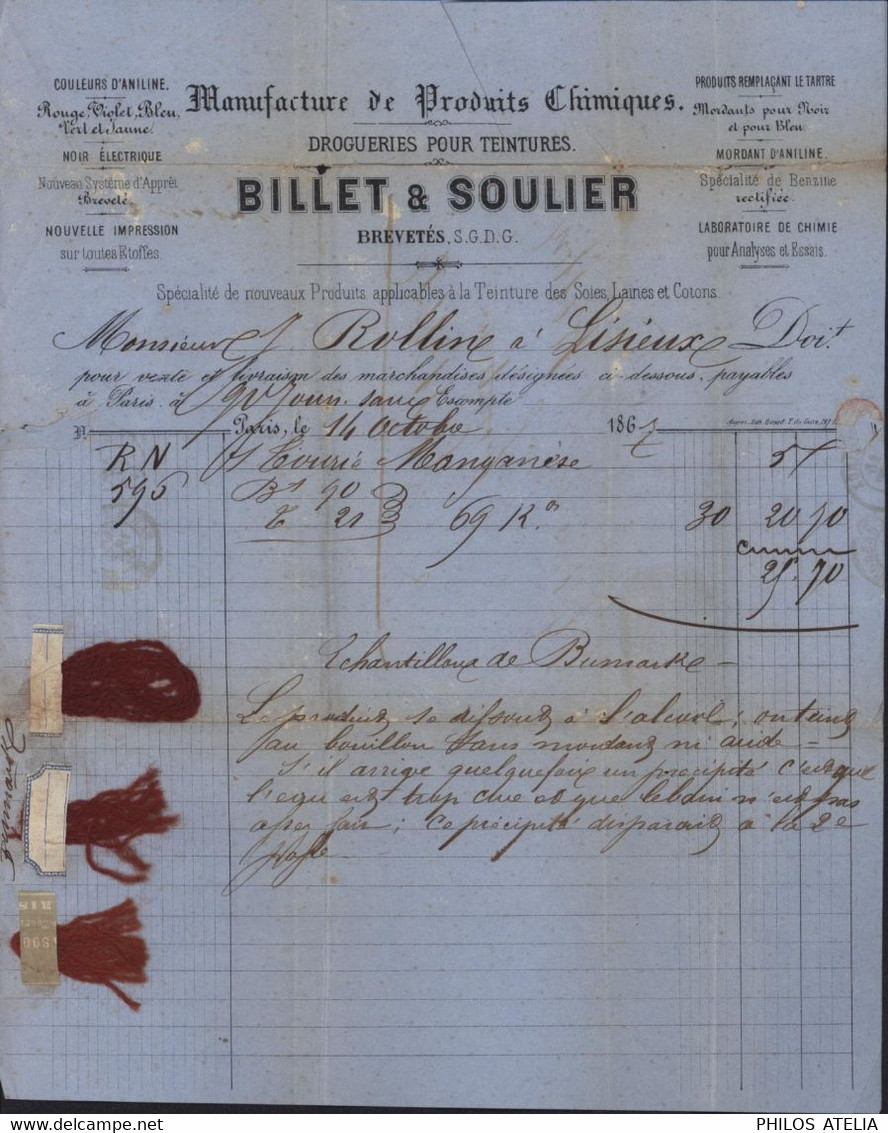 COULEURS D'ANILINE.
Rouge, Violet, Bleu,
Vert et Jaune.
NOIR ÉLECTRIQUE
Nouveau Système d'Apprêt
Breveté.
NOUVELLE IMPRESSION
sur toutes Etoffes.
Manufacture de Produits Chimiques.
DROGUERIES POUR TEINTURES.
BILLET & SOULIER
BREVETÉS, S.G.D.G.
PRODUITS REMPLAÇANT LE TARTRE
Mordants pour Noir
et pour Bleu.
MORDANT D'ANILINE.
Spécialité de Benzine
rectifiée.
LABORATOIRE DE CHIMIE
pour Analyses et Essais.
Spécialité de nouveaux Produits applicables à la Teinture des Soies, Laines et Cotons.
Monsieur Rolline à Lisieux Doit
pour vente et livraison des marchandises désignées ci-dessous, payables
à Paris à 90 jours sans Escompte
N. Paris, le 14 Octobre 186
R N 1 Manganèse 5
595 Bt 90
T 21 69 Kos 30 20 70
25.70
Echantillons de
Le produit se dissout à l'alcool; on teint
au bouillon sans mordant ni acide =
S'il arrive quelquefois un précipité c'est que
l'eau est trop crue et que le bain n'est pas
assez; ce précipité disparait à la 2e
RIS